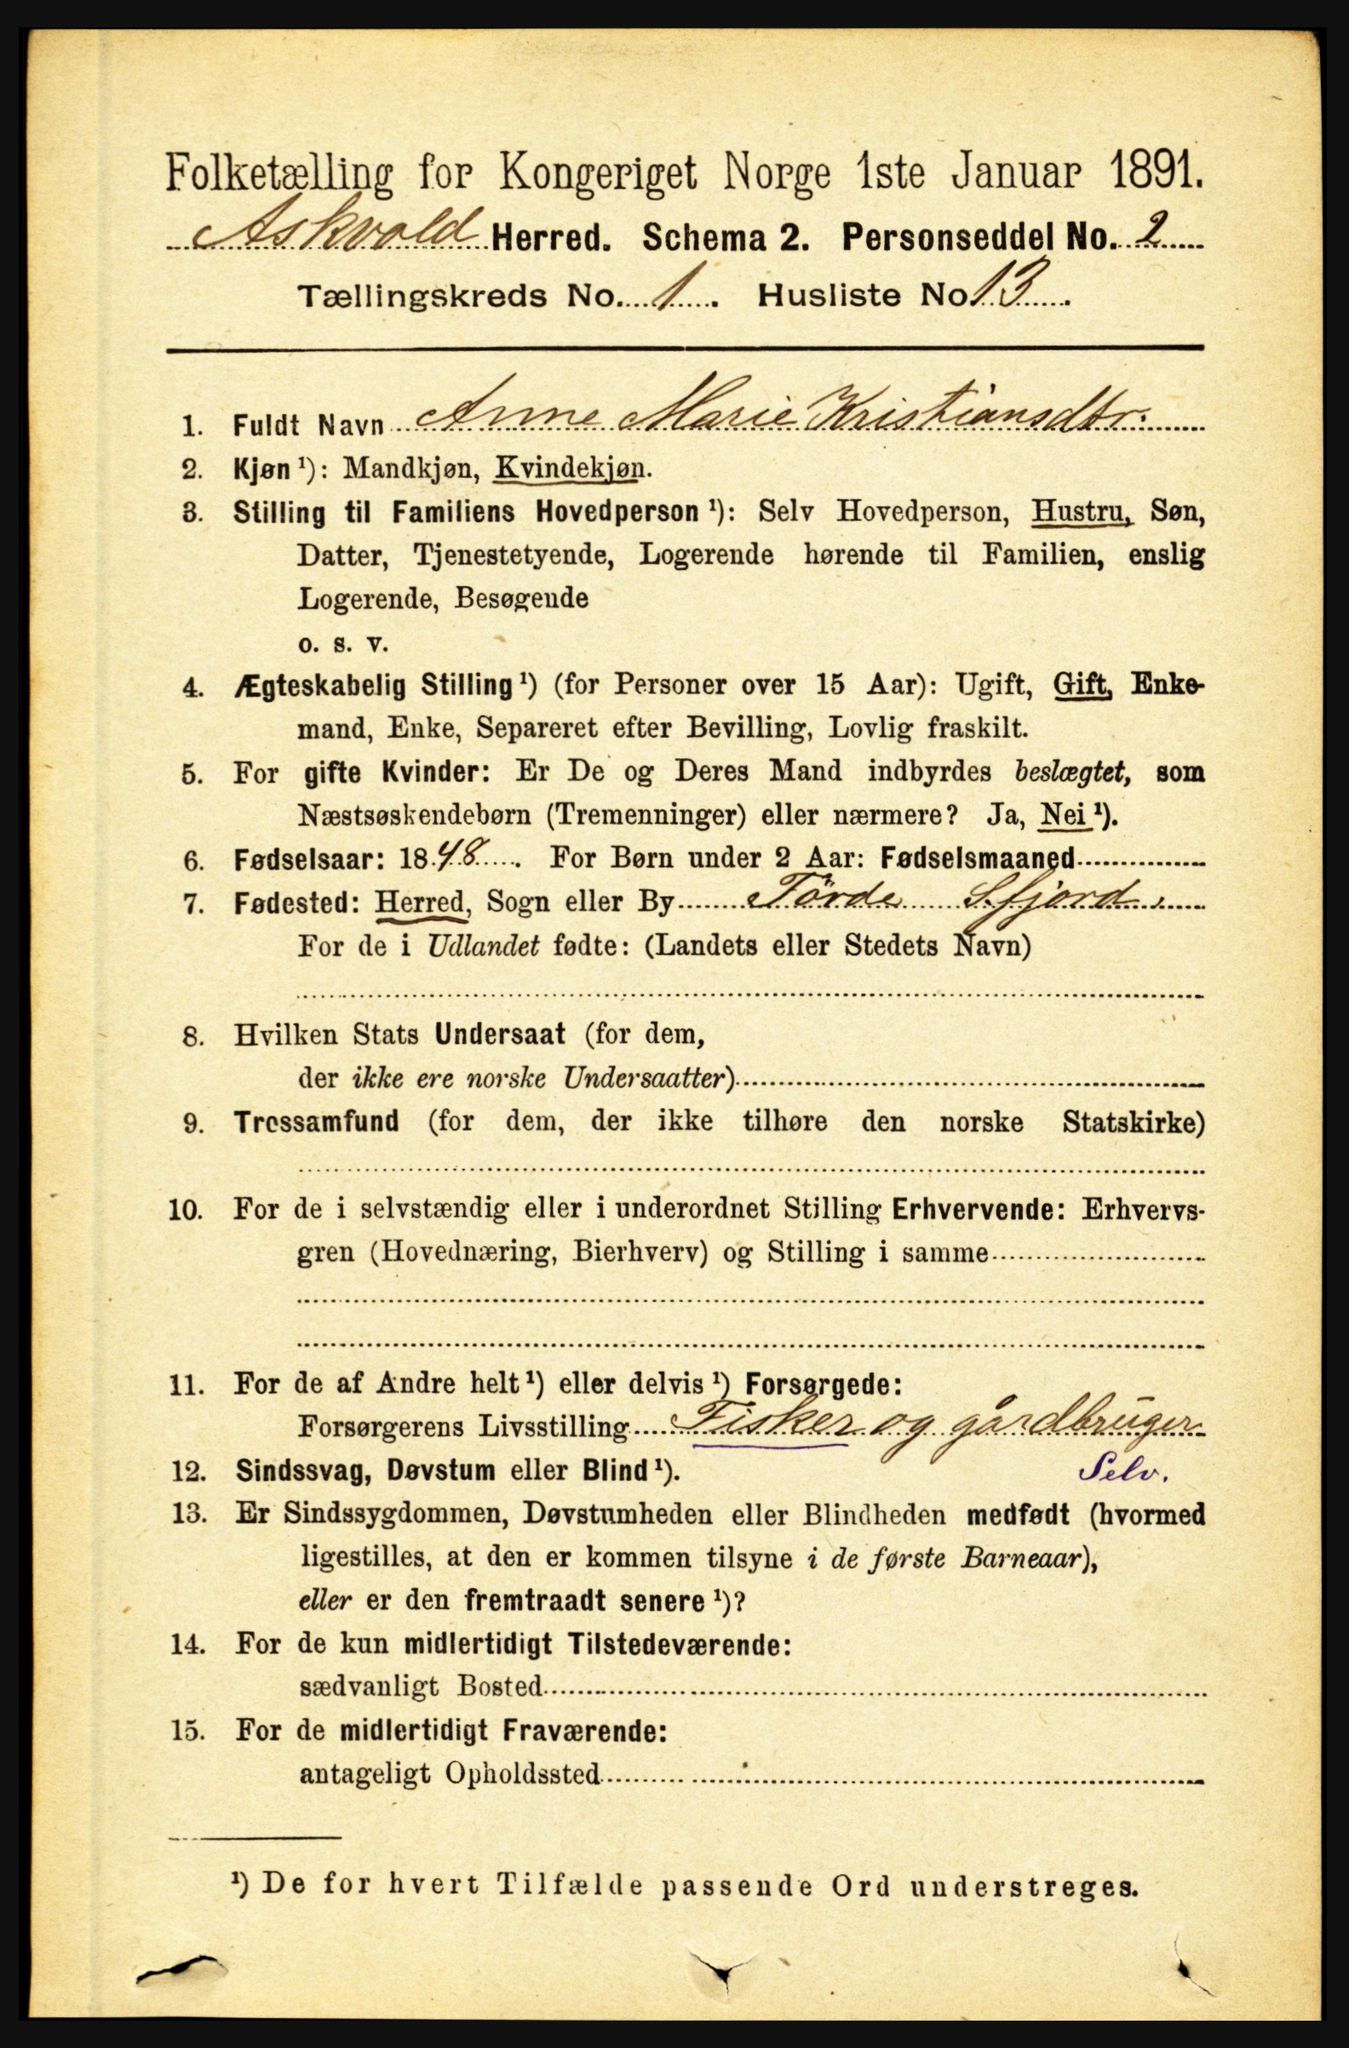 Folketælling for Kongeriget Norge 1ste Januar 1891.
Askvold Herred. Schema 2. Personseddel No. 2
Tællingskreds No. 1. Husliste No 13.
1. Fuldt Navn Anne Marie Kristiansdtr.
2. Kjøn ¹): Mandkjøn, Kvindekjøn.
3. Stilling til Familiens Hovedperson ¹): Selv Hovedperson, Hustru, Søn,
Datter, Tjenestetyende, Logerende hørende til Familien, enslig
Logerende, Besøgende
o. s. v.
4. Ægteskabelig Stilling ¹) (for Personer over 15 Aar): Ugift, Gift, Enke-
mand, Enke, Separeret efter Bevilling, Lovlig fraskilt.
5. For gifte Kvinder: Er De og Deres Mand indbyrdes beslægtet, som
Næstsøskendebørn (Tremenninger) eller nærmere? Ja, Nei ¹).
6. Fødselsaar: 1848. For Børn under 2 Aar: Fødselsmaaned
7. Fødested: Herred, Sogn eller By Förde Sfjord.
For de i Udlandet fødte: (Landets eller Stedets Navn)
8. Hvilken Stats Undersaat (for dem,
der ikke ere norske Undersaatter)
9. Trossamfund (for dem, der ikke tilhøre den norske Statskirke)
10. For de i selvstændig eller i underordnet Stilling Erhvervende: Erhvervs-
gren (Hovednæring, Bierhverv) og Stilling i samme
11. For de af Andre helt ¹) eller delvis ¹) Forsørgede:
Forsørgerens Livsstilling Fisker og gårdbruger
12. Sindssvag, Døvstum eller Blind ¹). Selv.
13. Er Sindssygdommen, Døvstumheden eller Blindheden medfødt (hvormed
ligestilles, at den er kommen tilsyne i de første Barneaar),
eller er den fremtraadt senere ¹)?
14. For de kun midlertidigt Tilstedeværende:
sædvanligt Bosted
15. For de midlertidigt Fraværende:
antageligt Opholdssted
¹) De for hvert Tilfælde passende Ord understreges.